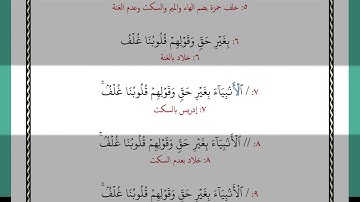 ٥: خلف حمزة بضم الهاء والميم والسكت وعدم الغنة
بِغَيْرِ حَقٍّ وَقَوْلِهِمْ قُلُوبُنَا غُلْفُ
٦: خلاد بالغنة
٧: / ٱلْأَنۢبِيَآءَ بِغَيْرِ حَقٍّ وَقَوْلِهِمْ قُلُوبُنَا غُلْفُۢ ۚ
٧: إدريس بالسكت
٨: // ٱلْأَنۢبِيَآءَ بِغَيْرِ حَقٍّ وَقَوْلِهِمْ قُلُوبُنَا غُلْفُۢ ۚ
٨: خلاد بعدم السكت
٩: / ٱلْأَنۢبِيَآءَ بِغَيْرِ حَقٍّ وَقَوْلِهِمْ قُلُوبُنَا غُلْفُۢ ۚ